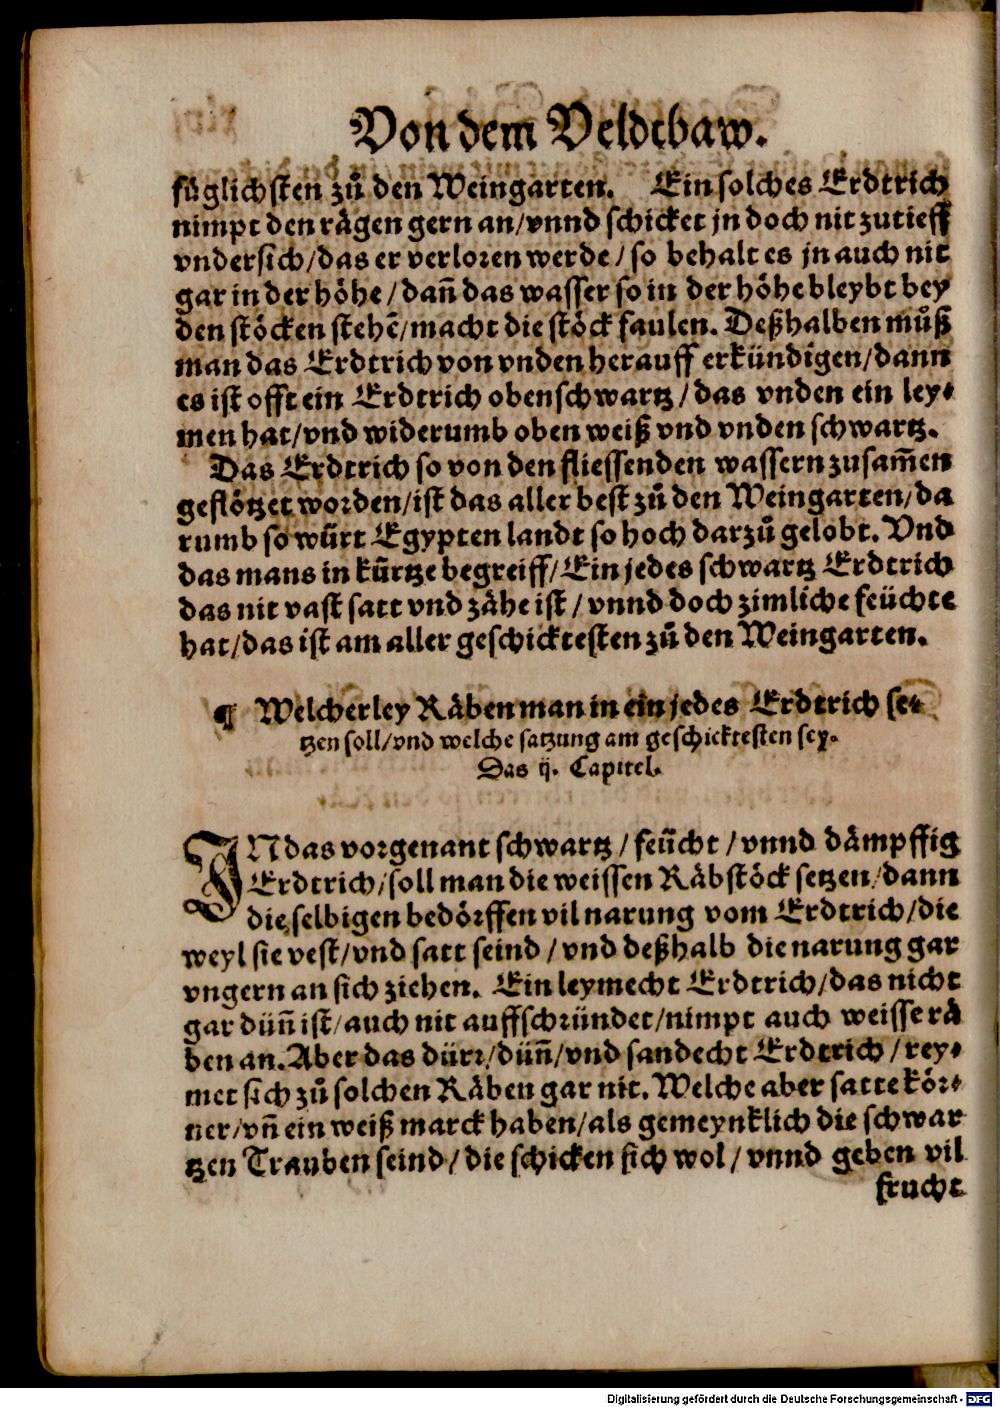 Von dem Veldtbaw.
füglichsten zů den Weingarten. Ein solches Erdtrich
nimpt den rägen gern an/vnnd schicket jn doch nit zutieff
vndersich/das er verloren werde/so behalt es jn auch nit
gar in der höhe/dañ das wasser so in der höhe bleybt bey
den stöcken stehẽ/macht die stöck faulen. Deßhalben můß
man das Erdtrich von vnden herauff erkündigen/dann
es ist offt ein Erdtrich oben schwartz/das vnden ein ley⸗
men hat/vnd widerumb oben weiß vnd vnden schwartz.
Das Erdtrich so von den fliessenden wassern zusam̃en
geflötzet worden/ist das aller best zů den Weingarten/da
rumb so würt Egypten landt so hoch darzů gelobt. Vnd
das mans in kürtze begreiff/Ein jedes schwartz Erdtrich
das nit vast satt vnd zähe ist/vnnd doch zimliche feüchte
hat/das ist am aller geschicktesten zů den Weingarten.
¶ Welcherley Räben man in ein jedes Erdtrich se⸗
tzen soll/vnd welche satzung am geschicktesten sey.
Das ij. Capitel.
IN das vorgenant schwartz/feücht/vnnd dämpffig
Erdtrich/soll man die weissen Räbstöck setzen/dann
die selbigen bedörffen vil narung vom Erdtrich/die
weyl sie vest/vnd satt seind/vnd deßhalb die narung gar
vngern an sich ziehen. Ein leymecht Erdtrich/das nicht
gar düñ ist/auch nit auffschründet/nimpt auch weisse rä
ben an. Aber das dürr/düñ/vnd sandecht Erdtrich/rey⸗
met sich zů solchen Räben gar nit. Welche aber satte kör⸗
ner/vñ ein weiß marck haben/als gemeynklich die schwar
tzen Trauben seind/die schicken sich wol/vnnd geben vil
frucht
Digitalisierung gefördert durch die Deutsche Forschungsgemeinschaft - DFG